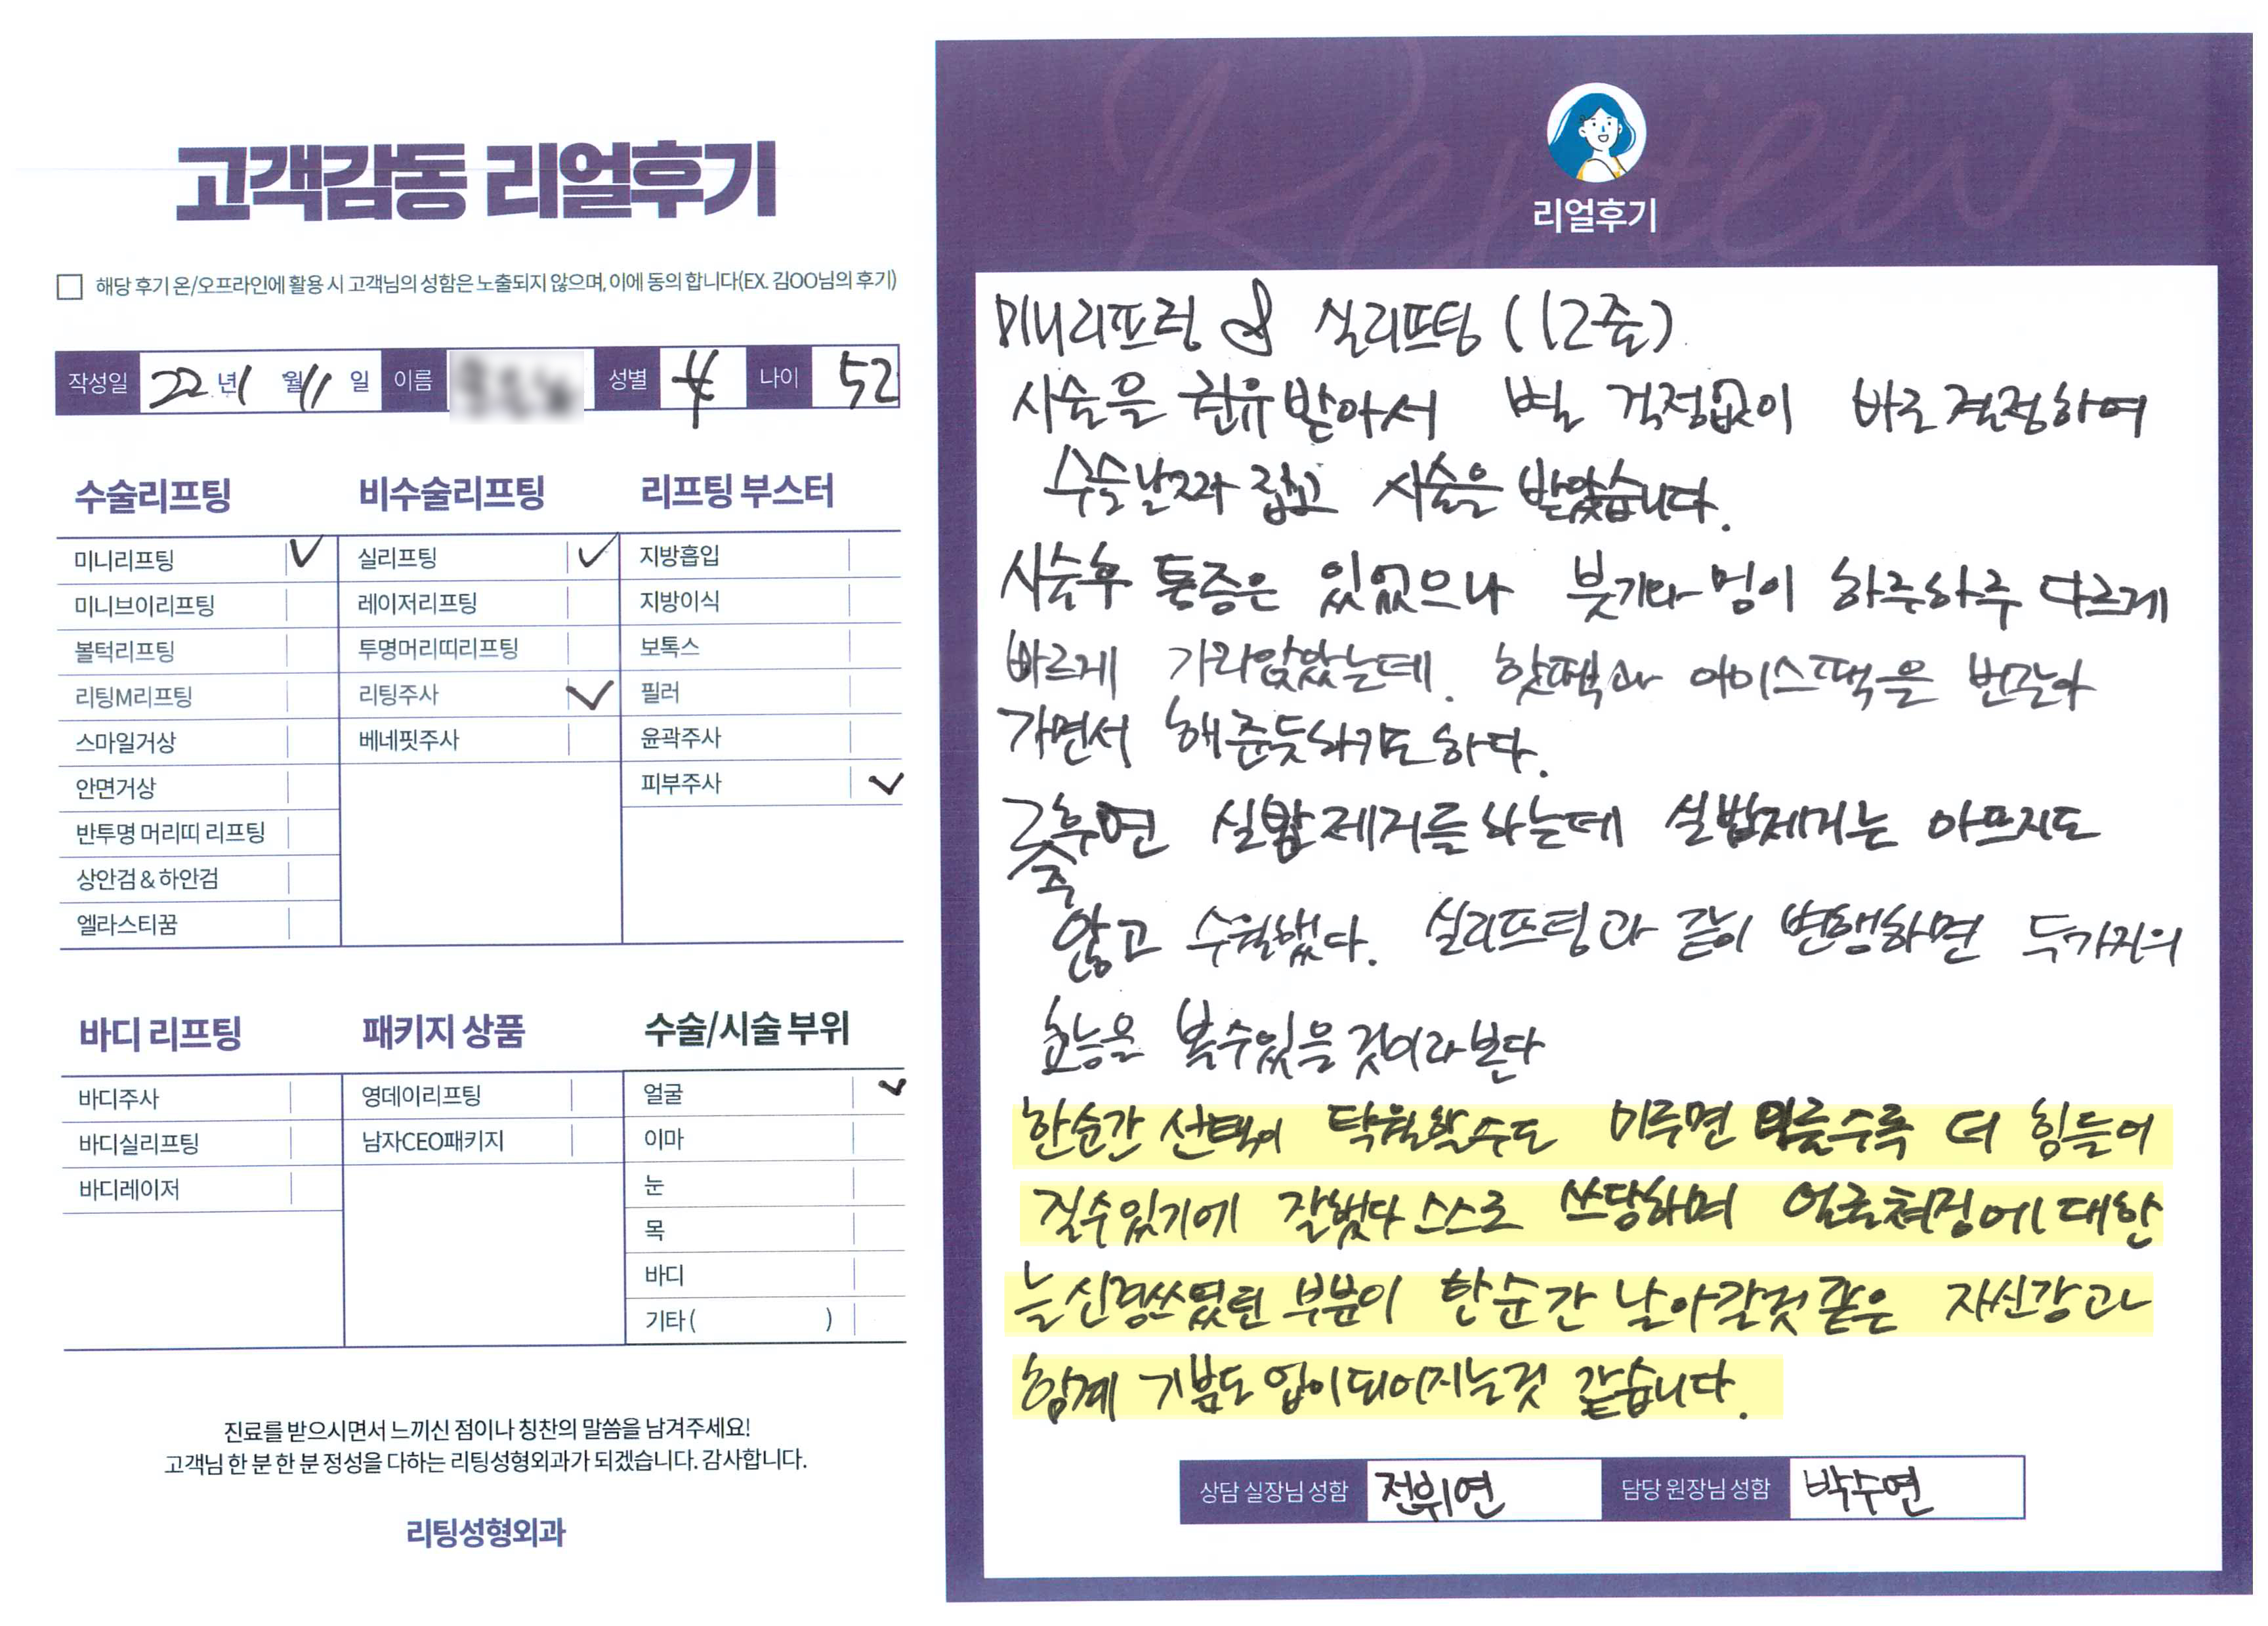 고객감동 리얼후기
해당 후기 온/오프라인에 활용 시 고객님의 성함은 노출되지 않으며, 이에 동의 합니다(EX. 김OO님의 후기)
작성일 22년 1월 11일 이름 성별 여 나이 52
수술리프팅
미니리프팅 ✓
미니브이리프팅
볼턱리프팅
리팅M리프팅
스마일거상
안면거상
반투명 머리띠 리프팅
상안검 & 하안검
엘라스티꿈
비수술리프팅
실리프팅 ✓
레이저리프팅
투명머리띠리프팅
리팅주사 ✓
베네핏주사
리프팅 부스터
지방흡입
지방이식
보톡스
필러
윤곽주사
피부주사 ✓
바디 리프팅
바디주사
바디실리프팅
바디레이저
패키지 상품
영데이리프팅
남자CEO패키지
수술/시술 부위
얼굴 ✓
이마
눈
목
바디
기타 ( )
진료를 받으시면서 느끼신 점이나 칭찬의 말씀을 남겨주세요!
고객님 한 분 한 분 정성을 다하는 리팅성형외과가 되겠습니다. 감사합니다.
리팅성형외과
Review
리얼후기
미니리프팅 & 실리프팅 (12줄)
시술을 권유받아서 별 걱정없이 바로 결정하여
수술날짜 잡고 시술을 받았습니다.
시술후 통증은 있었으나 붓기와 멍이 하루하루 다르게
빠르게 가라앉았는데. 핫팩과 아이스팩을 번갈아
가면서 해준듯하기도 하다.
실밥제거를 하는데 실밥제거는 아프지도
않고 수월했다. 실리프팅과 같이 병행하면 두가지의
효능을 볼수있을 것이라 본다
한순간 선택이 탁월할수도 미루면 미룰수록 더 힘들어
질수있기에 잘했다 스스로 쓰담하며 얼굴쳐짐에 대한
늘 신경쓰였던 부분이 한순간 날아갈것 같은 자신감과
함께 기분도 업이되어지는것 같습니다.
상담 실장님 성함 전휘연 담당 원장님 성함 박수연